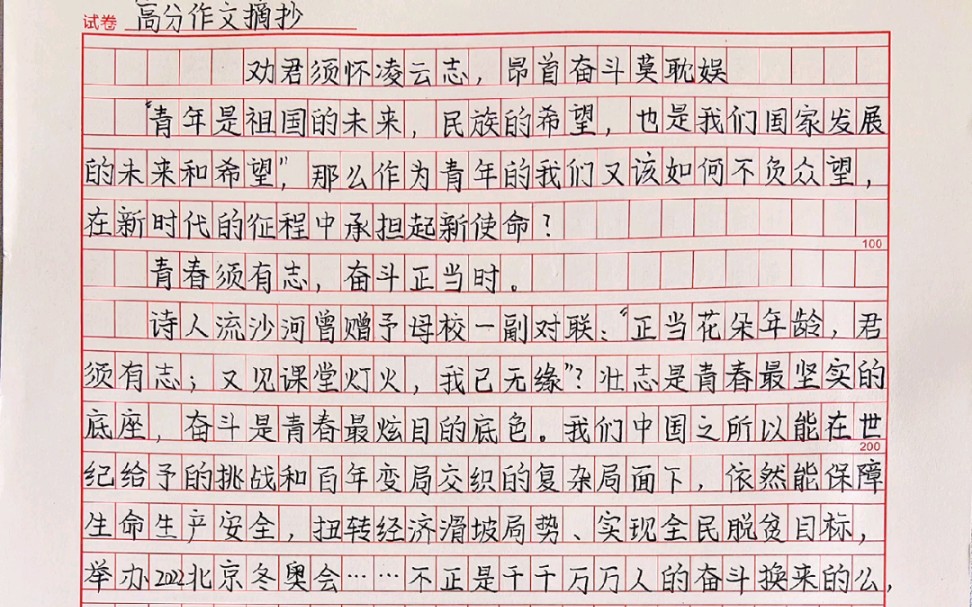 试卷 高分作文摘抄
劝君须怀凌云志，昂首奋斗莫耽娱
“青年是祖国的未来，民族的希望，也是我们国家发展
的未来和希望”，那么作为青年的我们又该如何不负众望，
在新时代的征程中承担起新使命？
100
青春须有志，奋斗正当时。
诗人流沙河曾赠予母校一副对联：“正当花朵年龄，君
须有志；又见课堂灯火，我已无缘”？壮志是青春最坚实的
底座，奋斗是青春最炫目的底色。我们中国之所以能在世
200
纪给予的挑战和百年变局交织的复杂局面下，依然能保障
生命生产安全，扭转经济滑坡局势、实现全民脱贫目标，
举办2022北京冬奥会……不正是千千万万人的奋斗换来的么，